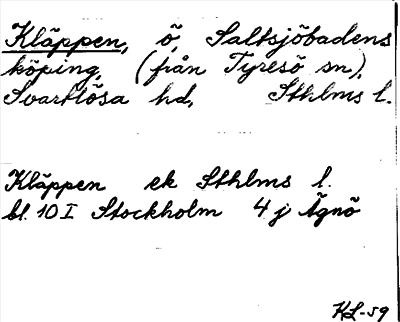 Kläppen, ö, Saltsjöbadens
köping, (från Tyresö sn),
Svartlösa hd, Sthlms l.
Kläppen ek Sthlms l.
bl. 10 I Stockholm 4 j Ägnö
KL-59